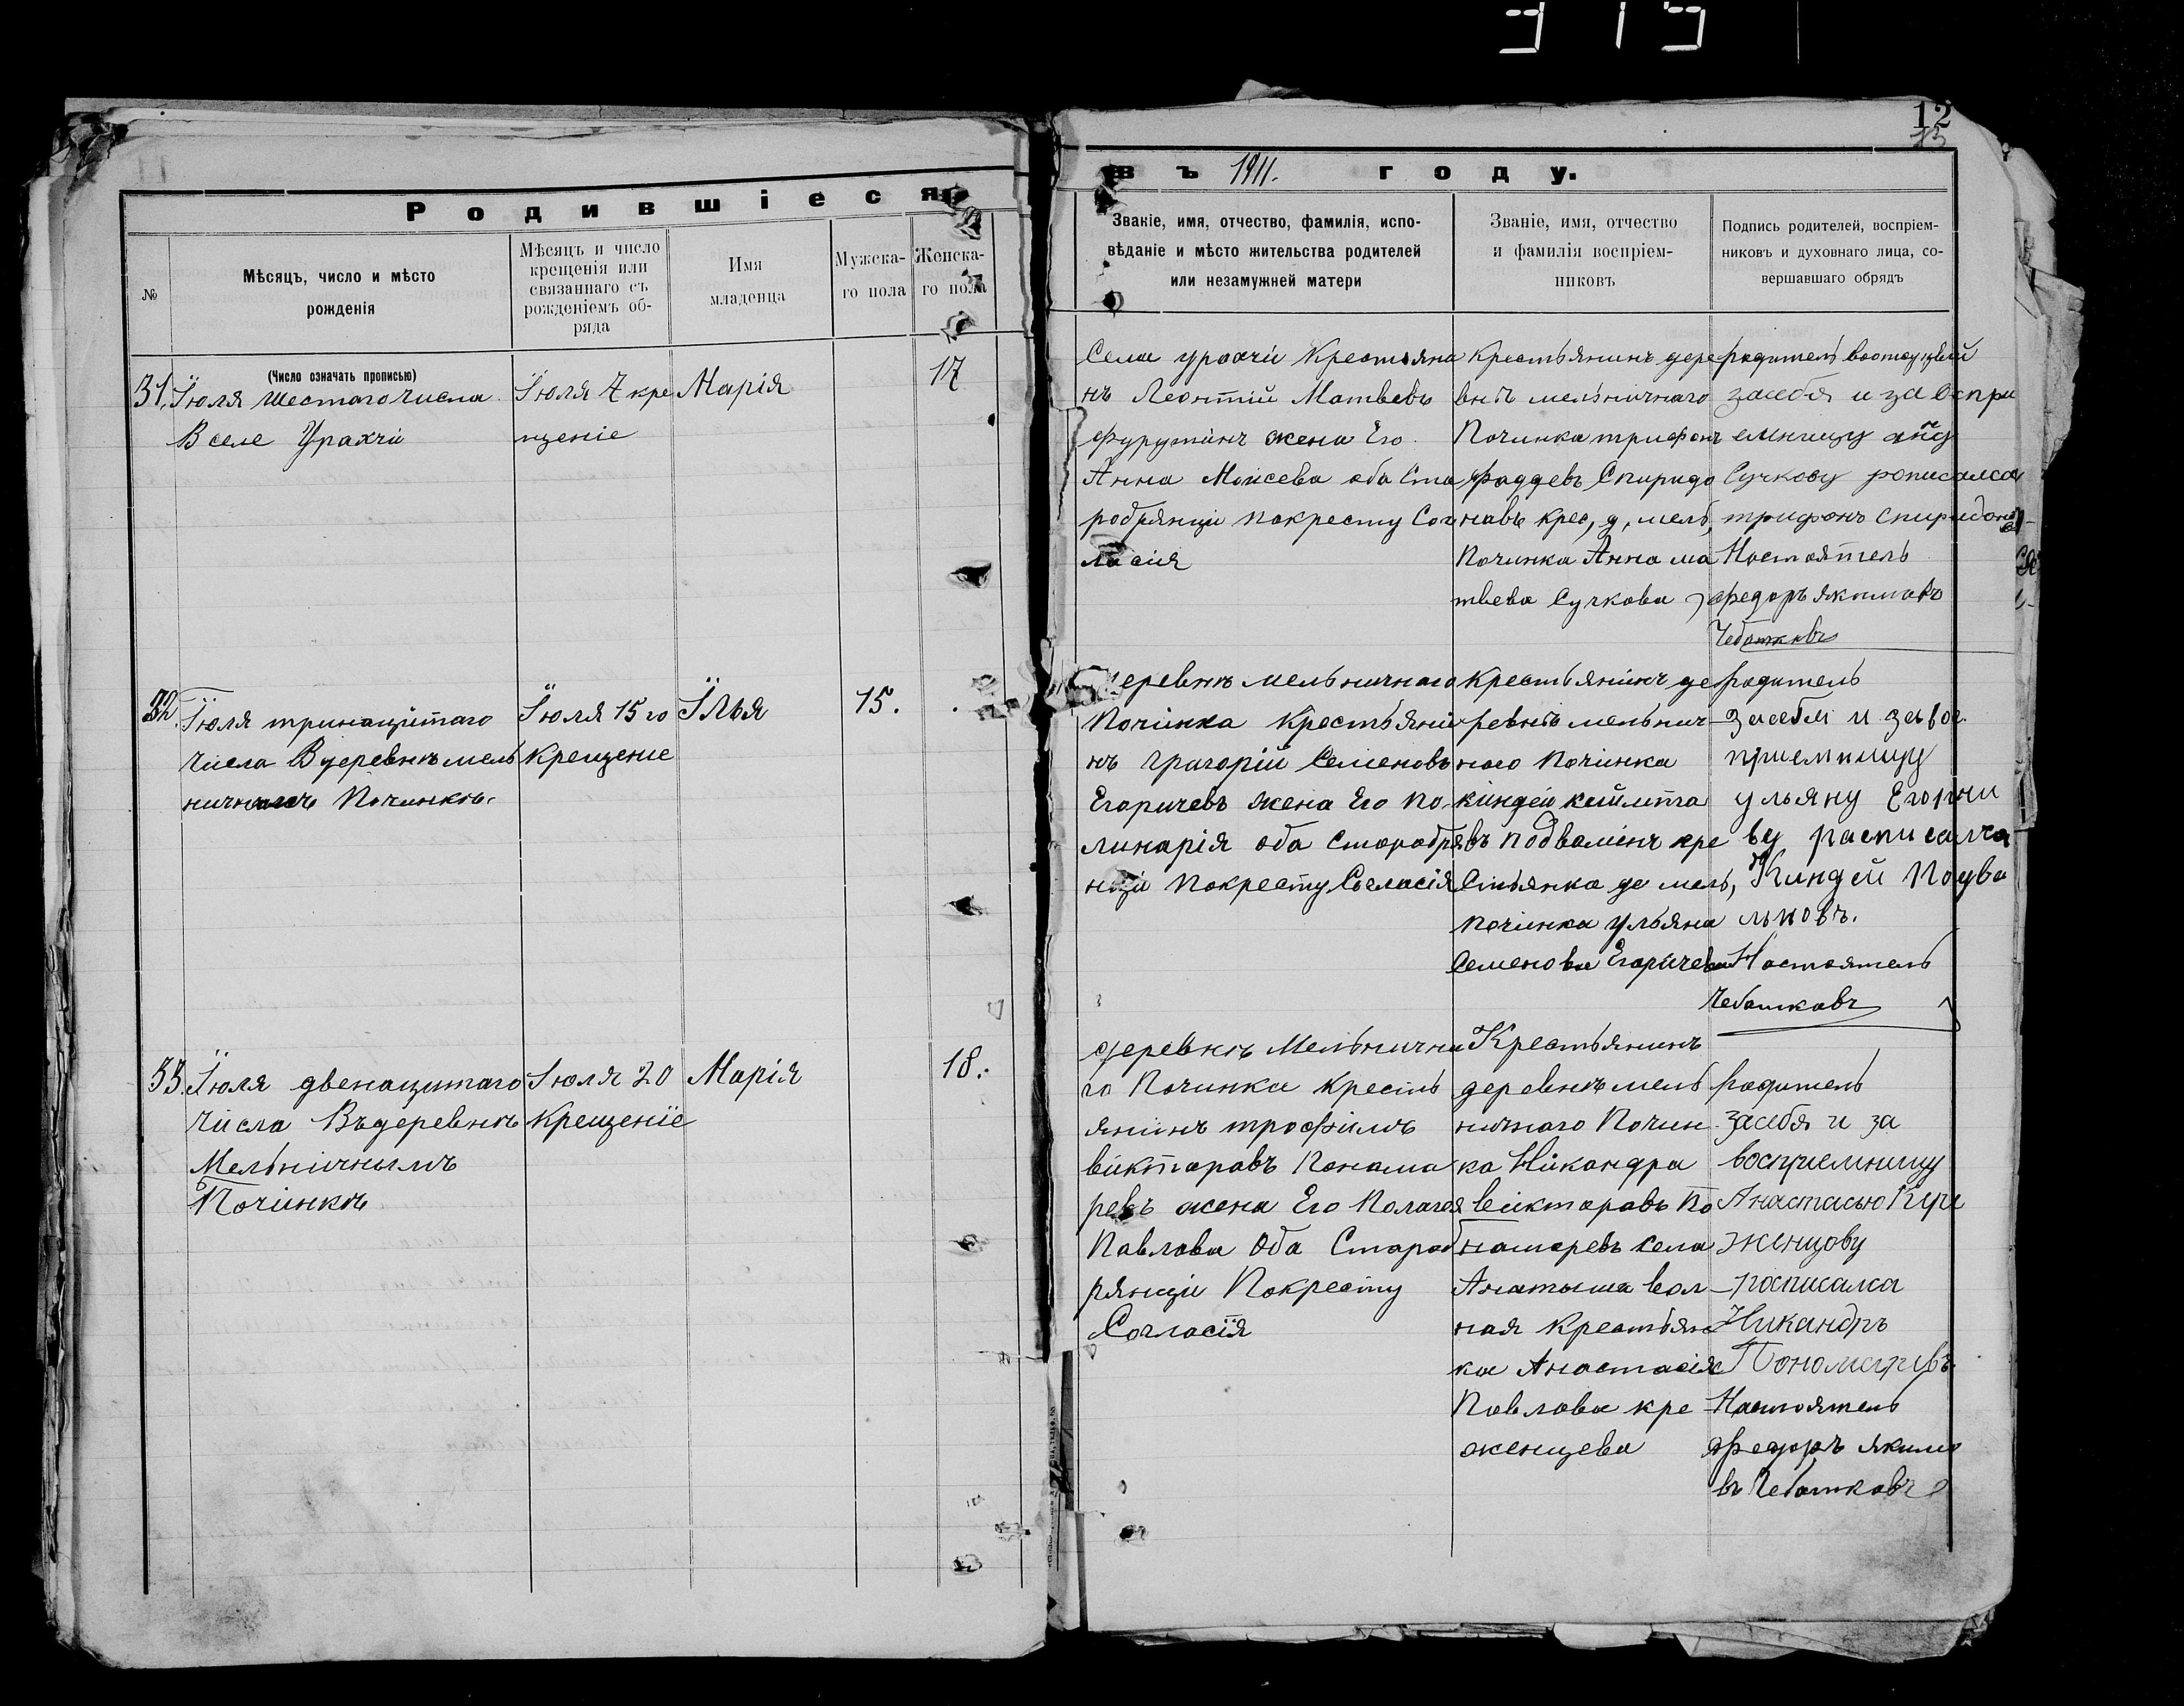 315
12
13
Родившіеся
въ 1911. году.
№
Мѣсяцъ, число и мѣсто
рожденія
Мѣсяцъ и число
крещенія или
связаннаго съ
рожденіемъ об-
ряда
Имя
младенца
Мужска-
го пола
Женска-
го пола
Званіе, имя, отчество, фамилія, испо-
вѣданіе и мѣсто жительства родителей
или незамужней матери
Званіе, имя, отчество
и фамилія воспріем-
никовъ
Подпись родителей, воспріем-
никовъ и духовнаго лица, со-
вершавшаго обрядъ
(Число означать прописью)
31. Їюля шестаго числа
В селе Урахчи
Їюля 7 кре
щеніе
Марія
17
Села урахчи Крестьяни
нъ Леонтій Матвевъ
жена Его
Анна Моисева оба Ста
робрянци покресту Сог
ласія
крестьянинъ дере
внѣ мелничнаго
Починка трифонъ
Фаддевъ Спиридо
навъ крес, д, мелб,
Починка Анна ма
твева Сучкова
родитель
засебя и за Воспри
емницу
Сучкову рописался
трифонъ Спиридоно
Настоятель
федоръ якимовъ
Чеботковъ
32. Їюля тринацїтаго
числа В деревнѣ мель
Починкѣ.
Їюля 15 го
Крещеніе
Їлья
15.
деревнѣ мельничнаго
Почінка Крестьяні
нъ Григорій Семеновъ
Егоричевъ жена Его по
линарія оба Старобря
нци Покресту Согласія
крестьянинъ де
ревнѣ мельнич
наго Почінка
киндей
въ Подвалінъ кре
стьянка де мель,
почінка ульяна
Семенова Егоричева
родитель
засебя и за вос
приемницу
ульяну Егоричи
ву расписалса
Киндей Подва
льновъ.
Настоятель
Чеботковъ
33. Їюля двенацитаго
числа Въдеревнѣ
Мелѣничнымъ
Почінкѣ
Їюля 20
Крещенїе
Марія
18.
деревнѣ Мельнична
го Починка крестѣ
янинъ трофимъ
виктаровъ Понама
ревъ жена Его Полагея
Павлова Оба Староб
рянци Покресту
Согласїя
Крестьянинъ
деревнѣ мелб
ничнаго Почин
ка Никандра
виктаровъ По
намаревъ села
Анатыша вол
ная крестьян
ка Анастасія
Павлова кре
женцева
родитель
засебя и за
восприемницу
Анастасью Кре
женцову
росписалса
Никандръ
Пономаревъ
Настоятель
федоръ якимо
въ Чеботковъ